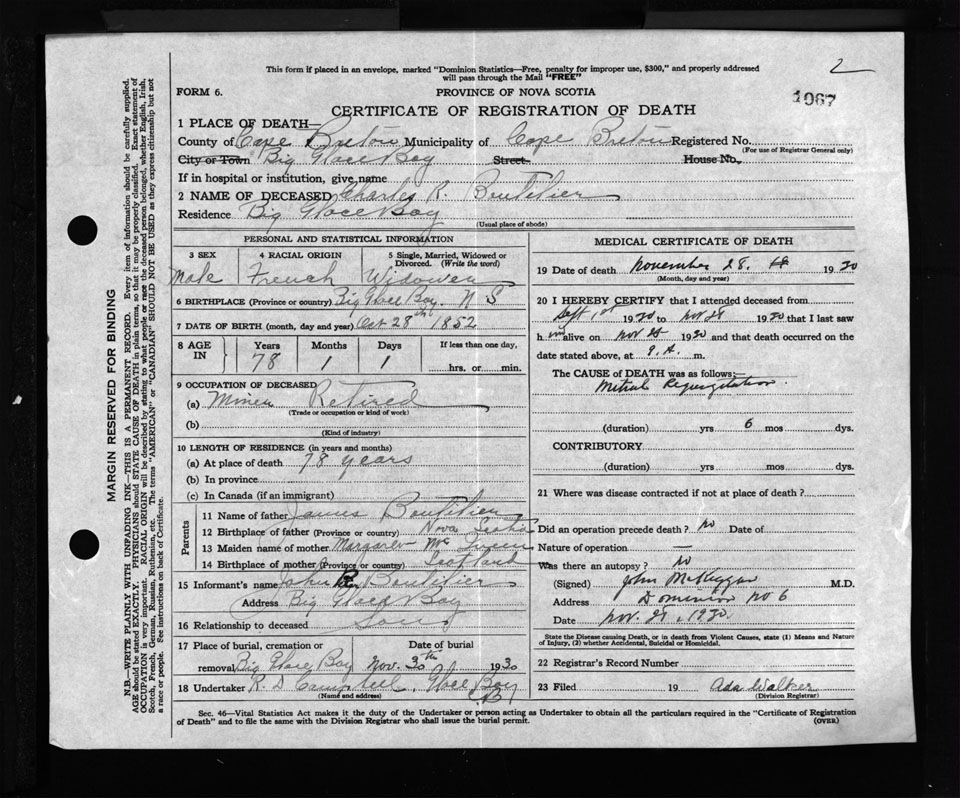 This form if placed in an envelope, marked "Dominion Statistics—Free, penalty for improper use, $300," and properly addressed
will pass through the Mail "FREE"
2
FORM 6.
PROVINCE OF NOVA SCOTIA
1067
CERTIFICATE OF REGISTRATION OF DEATH
1 PLACE OF DEATH—
County of Cape Breton Municipality of Cape Breton Registered No.
(For use of Registrar General only)
City or Town Big Glace Bay Street House No.
If in hospital or institution, give name
2 NAME OF DECEASED Charles R. Boutilier
Residence Big Glace Bay
(Usual place of abode)
PERSONAL AND STATISTICAL INFORMATION
3 SEX
Male
4 RACIAL ORIGIN
French
5 Single, Married, Widowed or
Divorced. (Write the word)
Widower
6 BIRTHPLACE (Province or country) Big Glace Bay. N S
7 DATE OF BIRTH (month, day, and year) Oct 28th 1852
8 AGE IN
Years Months Days If less than one day,
78 1 1 hrs. or min.
9 OCCUPATION OF DECEASED
(a) Miner Retired
(Trade or occupation or kind of work)
(b)
(Kind of industry)
10 LENGTH OF RESIDENCE (in years and months)
(a) At place of death 78 years
(b) In province
(c) In Canada (if an immigrant)
Parents
11 Name of father James Boutilier
12 Birthplace of father (Province or country) Nova Scotia
13 Maiden name of mother Margaret Mc
14 Birthplace of mother (Province or country) Scotland
15 Informant's name John Boutilier
Address Big Glace Bay
16 Relationship to deceased Son
17 Place of burial, cremation or Date of burial
removal Big Glace Bay Nov. 30th 1930
18 Undertaker R. D Campbell, Glace Bay
(Name and address) C.B.
MEDICAL CERTIFICATE OF DEATH
19 Date of death November 28. 1930
(Month, day and year)
20 I HEREBY CERTIFY that I attended deceased from
Sept 1st 1930 to Nov 28 1930 that I last saw
him alive on Nov 28 1930 and that death occurred on the
date stated above, at 9. A. m.
The CAUSE of DEATH was as follows:—
Mitral Regurgitation.
(duration) yrs 6 mos dys.
CONTRIBUTORY
(duration) yrs mos dys.
21 Where was disease contracted if not at place of death?
Did an operation precede death? no Date of
Nature of operation —
Was there an autopsy? no
(Signed) John McKiggan M.D.
Address Dominion No 6
Date Nov. 28, 1930.
State the Disease causing Death, or in death from Violent Causes, state (1) Means and Nature
of Injury, (2) whether Accidental, Suicidal or Homicidal.
22 Registrar's Record Number
23 Filed 19 Ada Walker
(Division Registrar)
Sec. 46—Vital Statistics Act makes it the duty of the Undertaker or person acting as Undertaker to obtain all the particulars required in the "Certificate of Registration
of Death" and to file the same with the Division Registrar who shall issue the burial permit. (OVER)
MARGIN RESERVED FOR BINDING
N.B.—WRITE PLAINLY WITH UNFADING INK—THIS IS A PERMANENT RECORD. Every item of information should be carefully supplied.
AGE should be stated EXACTLY. PHYSICIANS should STATE CAUSE OF DEATH in plain terms, so that it may be properly classified. Exact statement of
OCCUPATION is very important. RACIAL ORIGIN will be described by stating to what people or race the deceased person belonged, whether English, Irish,
Scotch, French, German, Russian, Ruthenian, etc. The terms "AMERICAN" or "CANADIAN" SHOULD NOT BE USED as they express citizenship but not
a race or people. See instructions on back of Certificate.